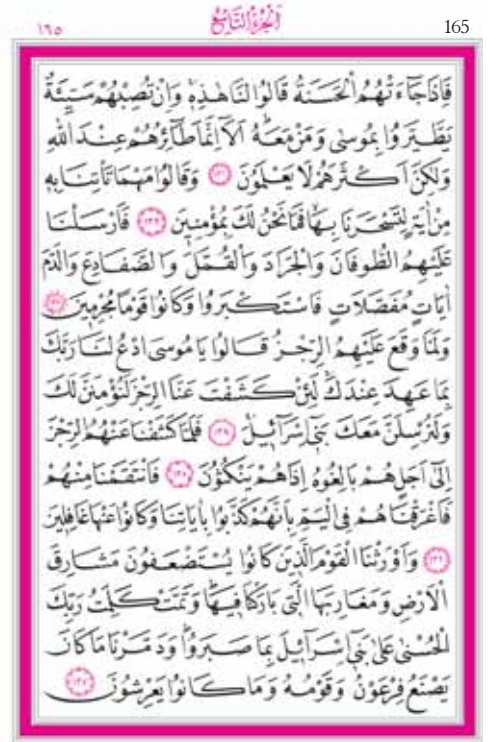 ١٦٥ اَلْجُزْءُ التَّاسِعُ 165
فَاِذَا جَٓاءَتْهُمُ الْحَسَنَةُ قَالُوا لَنَا هٰذِهٖ وَاِنْ تُصِبْهُمْ سَيِّئَةٌ
يَطَّيَّرُوا بِمُوسٰى وَمَنْ مَعَهُ اَلَٓا اِنَّمَا طَٓائِرُهُمْ عِنْدَ اللّٰهِ
وَلٰكِنَّ اَكْثَرَهُمْ لَا يَعْلَمُونَ ﴿١٣١﴾ وَقَالُوا مَهْمَا تَأْتِنَا بِهٖ
مِنْ اٰيَةٍ لِتَسْحَرَنَا بِهَا فَمَا نَحْنُ لَكَ بِمُؤْمِنٖينَ ﴿١٣٢﴾ فَاَرْسَلْنَا
عَلَيْهِمُ الطُّوفَانَ وَالْجَرَادَ وَالْقُمَّلَ وَالضَّفَادِعَ وَالدَّمَ
اٰيَاتٍ مُفَصَّلَاتٍ فَاسْتَكْبَرُوا وَكَانُوا قَوْمًا مُجْرِمٖينَ ﴿١٣٣﴾
وَلَمَّا وَقَعَ عَلَيْهِمُ الرِّجْزُ قَالُوا يَا مُوسَى ادْعُ لَنَا رَبَّكَ
بِمَا عَهِدَ عِنْدَكَ لَئِنْ كَشَفْتَ عَنَّا الرِّجْزَ لَنُؤْمِنَنَّ لَكَ
وَلَنُرْسِلَنَّ مَعَكَ بَنٖٓى اِسْرَٓائٖيلَ ﴿١٣٤﴾ فَلَمَّا كَشَفْنَا عَنْهُمُ الرِّجْزَ
اِلٰٓى اَجَلٍ هُمْ بَالِغُوهُ اِذَا هُمْ يَنْكُثُونَ ﴿١٣٥﴾ فَانْتَقَمْنَا مِنْهُمْ
فَاَغْرَقْنَاهُمْ فِى الْيَمِّ بِاَنَّهُمْ كَذَّبُوا بِاٰيَاتِنَا وَكَانُوا عَنْهَا غَافِلٖينَ
﴿١٣٦﴾ وَاَوْرَثْنَا الْقَوْمَ الَّذٖينَ كَانُوا يُسْتَضْعَفُونَ مَشَارِقَ
الْاَرْضِ وَمَغَارِبَهَا الَّتٖى بَارَكْنَا فٖيهَا وَتَمَّتْ كَلِمَتُ رَبِّكَ
الْحُسْنٰى عَلٰى بَنٖٓى اِسْرَٓائٖيلَ بِمَا صَبَرُوا وَدَمَّرْنَا مَا كَانَ
يَصْنَعُ فِرْعَوْنُ وَقَوْمُهُ وَمَا كَانُوا يَعْرِشُونَ ﴿١٣٧﴾